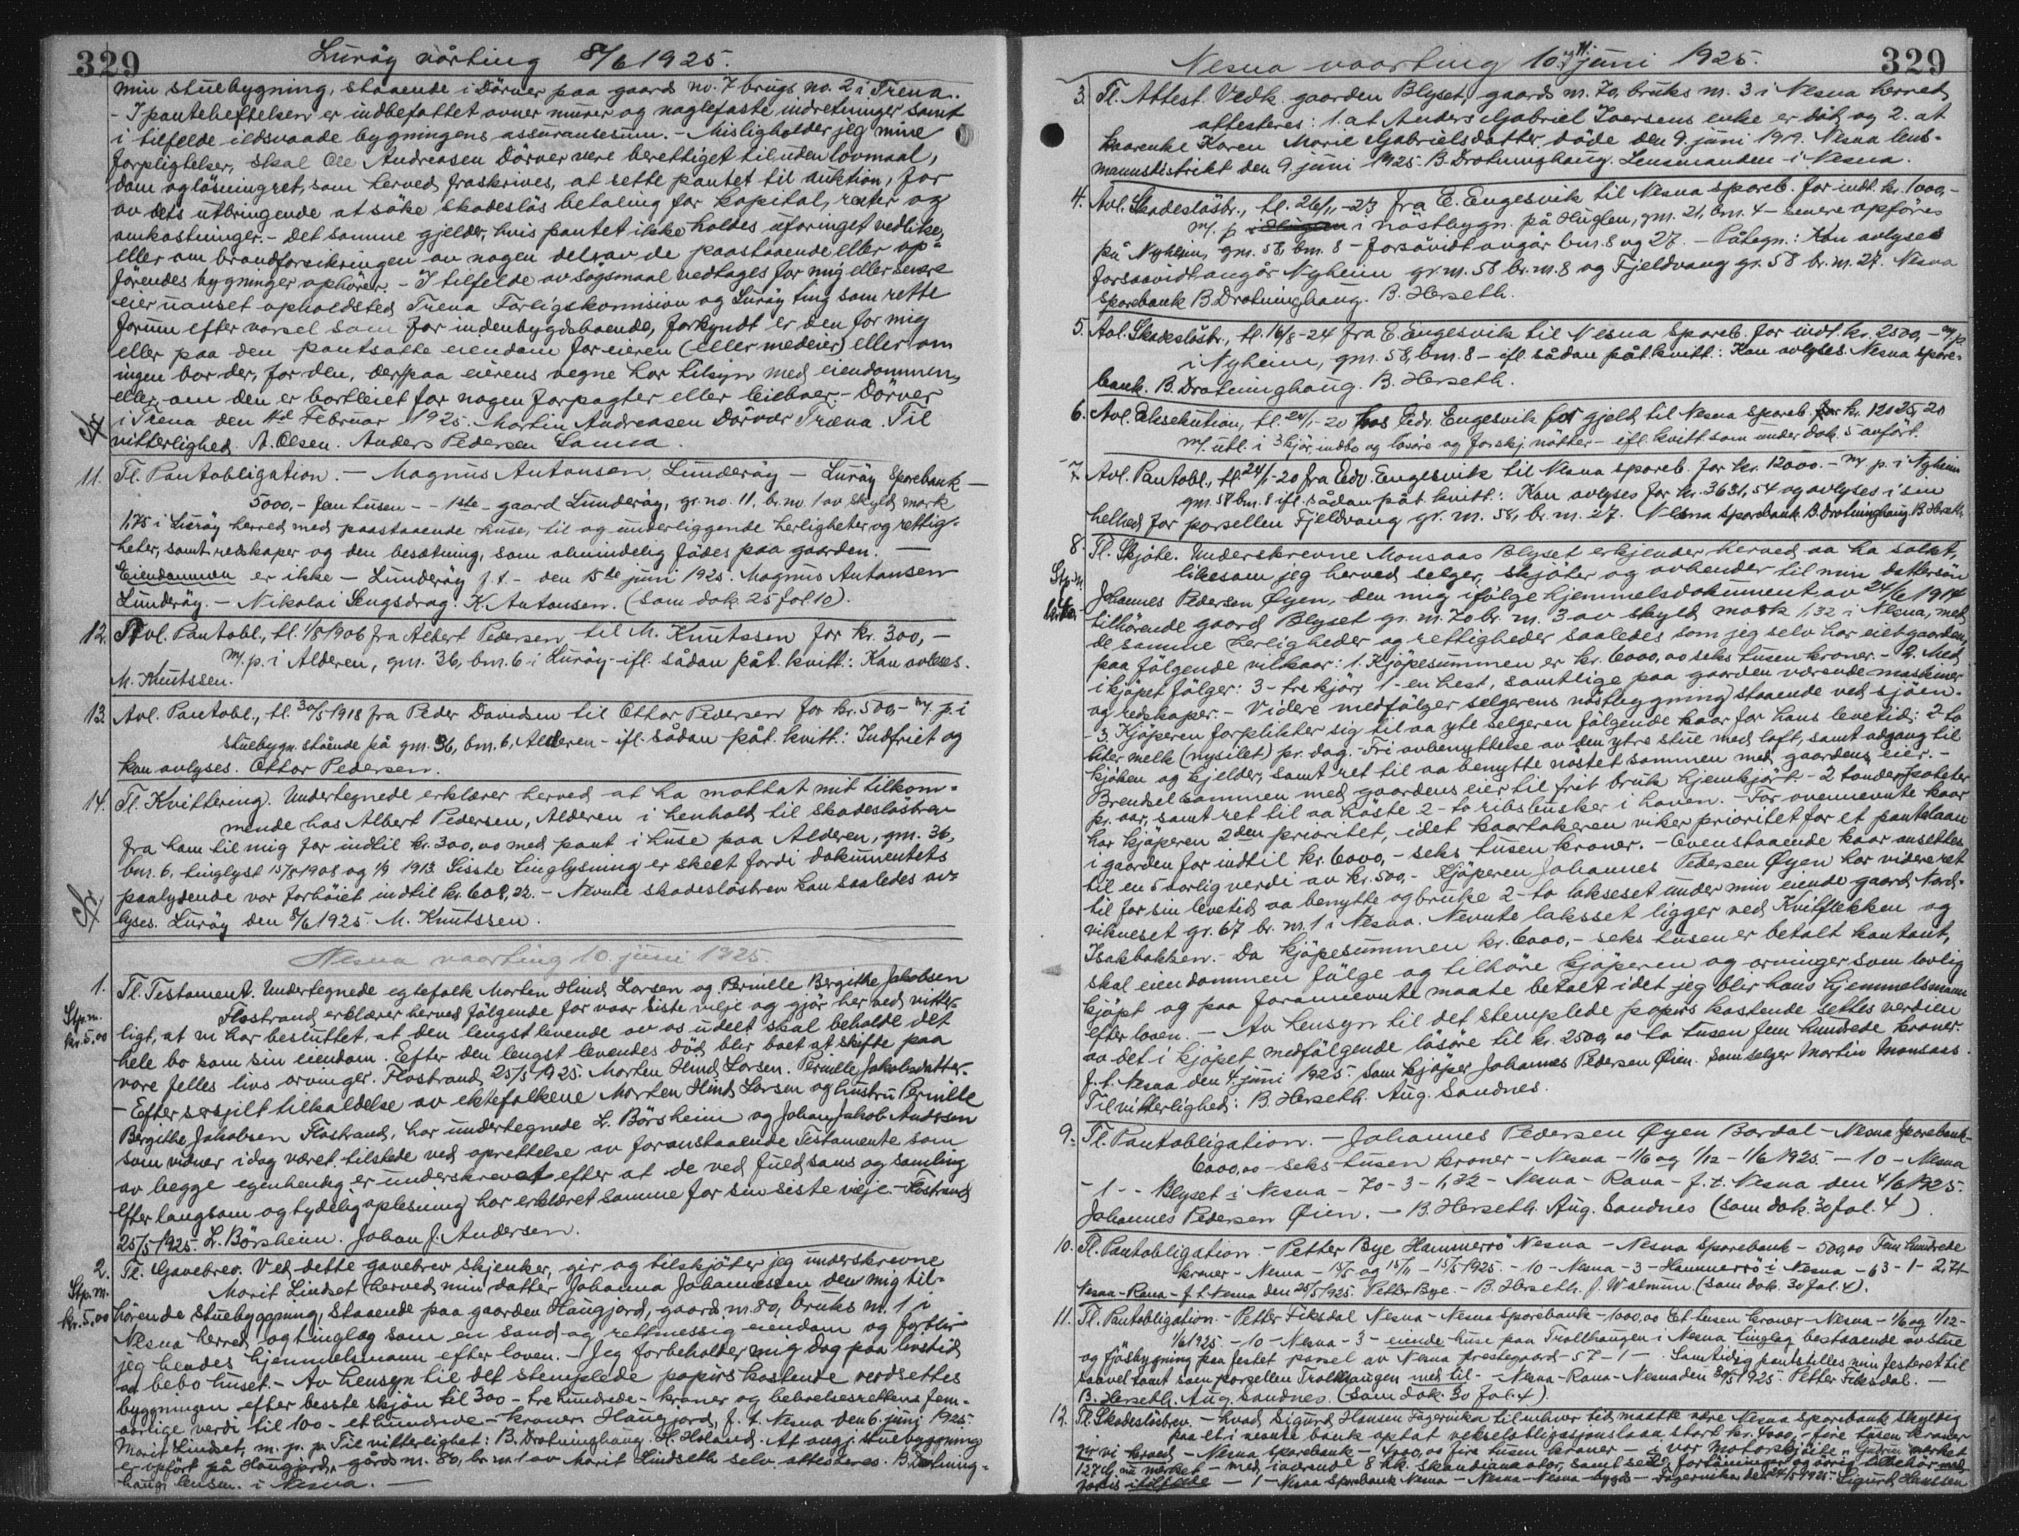 329
Lurøy vårting 8/6 1925.
min stuebygning, staaende i Dörvær paa gaards no. 7 brugs no. 2 i Træna.
- I panteheftelsen er indbefattet ovner murer og naglefaste indretninger samt
i tilfælde ildsvaade bygningens assuransesum. - Misligholder jeg mine
forpligtelser, skal Ole Andreasen Dörvær være berettiget til uden lovmaal,
dom og løsningret, som herved fraskrives, at sette pantet til auktion, for
av dets utbringende at söke skadeslös betaling for kapital, renter og
omkostninger. - Det samme gjelder, hvis pantet ikke holdes uforringet vedlike,
eller om brandforsikringen av nogen del av de paastaaende eller op-
förendes bygninger ophörer. - I tilfelde av søgsmaal vedtages for mig eller senere
eier uanset opholdsted Træna Forligskommision og Lurøy ting som rette
forum efter varsel som for indenbygdsboende, forkyndt er den for mig
eller paa den pantsatte eiendom for eieren (eller medeier) eller om
ingen bor der, for den, der paa eierens vegne har tilsyn med eiendommen,
eller, om den er bortleiet for nogen forpagter eller leieboer. - Dörvær
i Træna den 11te Februar 1925. Martin Andreasen Dörvær Træna. Til
vitterlighed A. Olsen. Anders Pedersen Sanna.
11. Tl. Pantobligation. - Magnus Antonsen, Lunderöy - Lurøy Sparebank -
5000,- fem tusen - - 1ste - gaard Lunderöy, gr. no. 11, br. no 1 av skyld mark
1,75 i Lurøy herred med paastaaende huse, til og underliggende herligheter og rettig-
heter, samt redskaper og den besætning, som almindelig födes paa gaarden. -
Eiendommen er ikke - Lunderöy f. t. - den 15de juni 1925. Magnus Antonsen
Lunderöy. - Nikolai Sengsdrag. K. Antonsen. (Som dok. 25 fol. 10).
12. Avl. Pantobl., tl. 1/8 1906 fra Albert Pedersen til M. Knutssen for kr. 300,-
m/. p. i Alderen, gm. 36, bm. 6 i Lurøy - ifl. sådan påt. kvitt.: Kan avlyses.
M. Knutssen.
13. Avl. Pantobl., tl. 30/5 1918 fra Peder Davidsen til Ottar Pedersen for kr. 500,- m/. p. i
stuebygn. stående på gm. 36, bm. 6, Alderen - ifl. sådan påt. kvitt.: Indfriet og
kan avlyses. Ottar Pedersen.
14. Tl. Kvittering. Undertegnede erklærer herved at ha mottat mit tilkom-
mende hos Albert Pedersen, Alderen i henhold til skadeslösbrev
fra ham til mig for indtil kr. 300,00 med pant i huse paa Alderen, gm. 36,
bm. 6, tinglyst 15/5 1908 og 1/9 1913. Sisste tinglysning er skeet fordi dokumentets
paalydende var forhöiet indtil kr. 608,22. - Nevnte skadeslösbrev kan saaledes av-
lyses. Lurøy den 8/6 1925. M. Knutssen.
Nesna vaarting 10. juni 1925.
1. Tl. Testament. Undertegnede egtefolk Morten Hind Larsen og Pernille Bergithe Jakobsen
Flostrand erklærer herved følgende for vaar siste vilje og gjør herved vitter-
Stp.m. kr. 5,00
ligt, at vi har besluttet, at den lengst levende av os udelt skal beholde det
hele bo som sin eiendom. Efter den lengst levendes död blir boet at skifte paa
vore felles livs arvinger. Flostrand 25/5 1925. Morten Hind Larsen. Pernille Jakobsdatter.
- Efter serskilt tilkaldelse av ektefolkene Morten Hind Larsen og hustru Pernille
Bergithe Jakobsen Flostrand, har undertegnede L. Börsheim og Johan Jakob Andersen
som vidner idag været tilstede ved oprettelse av foranstaaende Testamente som
av begge egenhendig er underskrevet efter at de ved fuld sans og samling
efter langsom og tydelig oplesning har erklæret samme for sin siste vilje. - Flostrand
25/5 1925. L. Börsheim. Johan J. Andersen.
2. Tl. Gavebrev. Ved dette gavebrev skjenker, gir og tilskjøter jeg underskrevne
Stp.m. kr. 5,00
Marit Lindset herved min datter Johanna Johannessen den mig til-
hørende stuebygning, staaende paa gaarden Haugjord, gaards nr. 80, bruks nr. 1 i
Nesna herred og tinglag som en sand og rettmessig eiendom og forblir
jeg hendes hjemmelsmann efter loven. - Jeg forbeholder mig dog paa livstid
at bebo huset. - Av hensyn til det stemplede papirs kostende verdsettes
bygningen efter beste skjön til 300 - tre hundrede - kroner og beboelsesrettens fem-
aarlige verdi til 100 - et hundrede - kroner. Haugjord, f. t. Nesna den 6. juni 1925.
Marit Lindset, m. p. p. Til vitterlighet: B. Drotninghaug. H. Holand. At angj. stuebygning
er opført på Haugjord, gårds nr. 80, br. nr. 1 av Marit Lindseth selv attesteres. B. Drotning-
haug lensm. i Nesna. -
329
Nesna vaarting 10. og 11. juni 1925.
3. Tl. Attest. Vedk. gaarden Blyset, gaards nr. 70, bruks nr. 3 i Nesna herred
attesteres: 1. at Anders Gabriel Iversens enke er död og 2. at
kaarenke Karen Marie Gabrielsdatter döde den 9. juni 1919. Nesna lens-
mannsdistrikt den 9. juni 1925. B. Drotninghaug. Lensmanden i Nesna.
4. Avl. Skadeslösbr., tl. 26/1-27 fra E. Engesvik til Nesna spareb. for indt. kr. 1000,-
m/. p. i nöstbygn. på Huglen, gm. 21, bm. 4 - senere opføres
på Nyheim, gm. 58, bm. 8 - forsåvidt angår bm. 8 og 27. - Påtegn.: Kan avlyses
forsaavidt angår Nyheim gr. nr. 58 br. nr. 8 og Fjeldvang gr. 58 br. nr. 27. Nesna
sparebank B. Drotninghaug. B. Herseth.
5. Avl. Skadeslösbr., tl. 16/8-24 fra E. Engesvik til Nesna spareb. for indt. kr. 2500,- m/. p.
i Nyheim, gm. 58, bm. 8 - ifl. sådan påt. kvitt.: Kan avlyses. Nesna spare-
bank. B. Drotninghaug. B. Herseth.
6. Avl. Eksekution, tl. 24/1-20 hos Edv. Engesvik for gjeld til Nesna spareb. for kr. 12025,20
m/. utl. i 3 kjör, indbo og lösöre og forskj. nötter - ifl. kvitt. som under dok. 5 anført.
7. Avl. Pantobl., tl. 24/1-20 fra Edv. Engesvik til Nesna spareb. for kr. 12000. - m/ p. i Nyheim
gm. 58 bm. 8 ifl. sådan påt. kvitt.: Kan avlyses for kr. 3631,54 og avlyses i sin
helhed for parsellen Fjeldvang gr. nr. 58, br. nr. 27. Nesna Sparebank. B. Drotninghaug. B. Herseth.
8. Tl. Skjøte. Underskrevne Monsaas Blyset erkjender herved aa ha solgt,
likesom jeg herved selger, skjøter og avhender til min dattersön
Johannes Pedersen Øyen, den mig ifølge hjemmelsdokument av 24/6 1914
tilhörende gaard Blyset gr. nr. 70 br. nr. 3 av skyld mark 1,32 i Nesna, med
de samme herligheder og rettigheder saaledes som jeg selv har eiet gaarden,
paa følgende vilkaar: 1. Kjöpesummen er kr. 6000,00 seks tusen kroner. - 2. Med
i kjöpet følger: 3 - tre kjör, 1 - en hest, samtlige paa gaarden værende maskiner
og redskaper. - Videre medfølger selgerens nöstbygning staaende ved sjöen.
- 3. Kjöperen forplikter sig til aa yte selgeren følgende kaar for hans levetid: 2 to
liter melk (nysilet) pr. dag. Fri avbenyttelse av den ytre stue med loft, samt adgang til
kjöken og kjelder, samt ret til aa benytte nöstet sammen med gaardens eier. -
Brendsel sammen med gaardens eier til frit bruk hjemkjört - 2 tønder poteter
pr. aar, samt ret til aa höste 2 - to ribsbusker i haven. - For ovennevnte kaar
har kjöperen 2den prioritet, idet kaartakeren viker prioritet for et pantelaan
i gaarden for indtil kr. 6000,- seks tusen kroner. - Ovenstaaende kaar ansettes
til en 5 aarlig verdi av kr. 500,- Kjöperen Johannes Pedersen Øyen har videre ret
til for sin levetid aa benytte og bruke 2 - to lakseset under min eiende gaard Nord-
vikneset gr. 67 br. nr. 1 i Nesna. Nevnte laksset ligger ved Kvitflekken og
Isakbakken. - Da kjöpesummen kr. 6000,- seks tusen er betalt kontant,
skal eiendommen følge og tilhöre kjöperen og arvinger som lovlig
kjöpt og paa forannevnte maate betalt idet jeg blir hans hjemmelsmann
efter loven. - Av hensyn til det stemplede papirs kostende settes verdien
av det i kjöpet medfølgende lösöre til kr. 2500,00 to tusen fem hundrede kroner.
f. t. Nesna den 4. juni 1925. Som kjöper Johannes Pedersen Øien. Som selger Martin Monsaas.
Til vitterlighed: B. Herseth. Aug. Sandnes.
9. Tl. Pantobligation. - Johannes Pedersen Øyen Bardal - Nesna Sparebank -
6000,00 - seks tusen kroner - Nesna - 1/6 og 1/12 - 1/6 1925. - 10 - Nesna
- 1 - - Blyset i Nesna - 70 - 3 - 1,32 - Nesna - Rana - f. t. Nesna den 4/6 1925.
Johannes Pedersen Øien. - B. Herseth. Aug. Sandnes (Som dok. 30 fol. 4).
10. Tl. Pantobligation. - Petter Bye Hammerrö Nesna - Nesna Sparebank - 500,00 Fem hundrede
kroner - Nesna - 15/5 og 15/11 - 15/5 1925. - 10 - Nesna - 3 - Hammerrö i Nesna - 63 - 1 - 2,71 -
Nesna - Rana - f. t. Nesna den 25/5 1925. Petter Bye. - B. Herseth. J. Walnum (Som dok. 30 fol. 4).
11. Tl. Pantobligation. - Petter Fiksdal Nesna - Nesna Sparebank - 1000,00 Et tusen kroner - Nesna - 1/6 og 1/12 -
1/6 1925. - 10 - Nesna - 3 - eiende huse paa Trollhaugen i Nesna tinglag bestaaende av stue
og fjösbygning paa festet parsel av Nesna prestegaard - 57 - 1 - . Samtidig pantstilles min festeret til
saavel samt som parsellen Trollhaugen med til - - Nesna - Rana - Nesna den 30/5 1925. Petter Fiksdal. -
B. Herseth. Aug. Sandnes (som dok. 30 fol. 4)
12. Tl. Skadeslösbrev. - hvad Sigurd Hansen Fagervika til enhver tid maatte være Nesna Sparebank skyldig
paa et i nevnte bank optat vekselobligasjonslaan stort kr. 4000,- fire tusen kroner
- Nesna Sparebank - 4000,00 fire tusen kroner - i vor motorskjöite Gudrun merket
- med iværende 8 hk. skandiamotor, samt seil,
- 1 - Nesna Sparebank Nesna - Nesna - Nesna bygd - Fagervika den 24/5 1925. Sigurd Hanssen